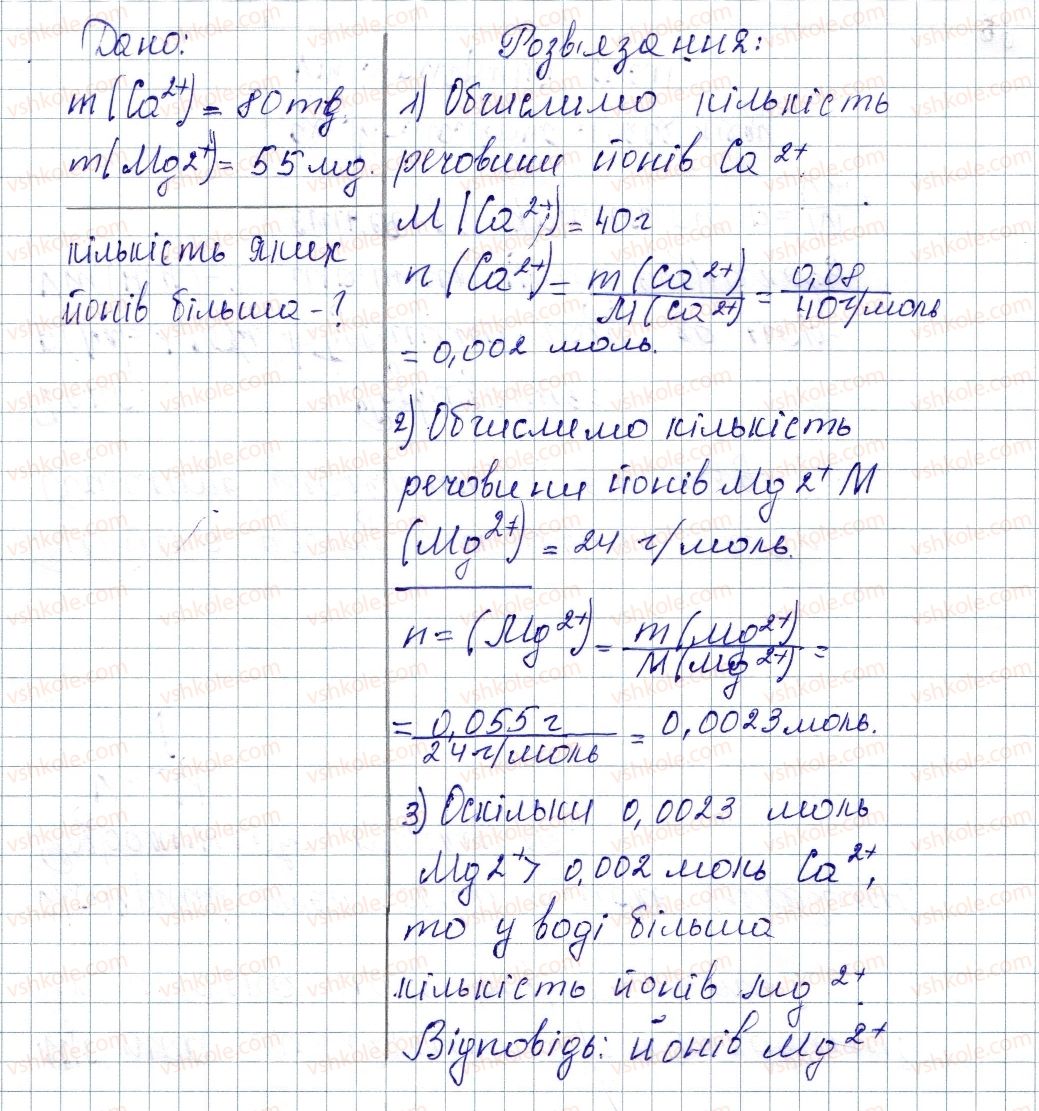 Дано:
m(Ca²⁺) = 80 мг.
m(Mg2⁺) = 55 мг.
кількість яких
йонів більша - ?
Розв'язання:
1) Обчислимо кількість
речовини йонів Ca 2+
M (Ca²⁺) = 40 г
n (Ca²⁺) = m (Ca²⁺) / M (Ca²⁺) = 0,08 / 40 г/моль
= 0,002 моль.
2) Обчислимо кількість
речовини йонів Mg 2⁺ M
(Mg²⁺) = 24 г/моль.
n = (Mg²⁺) = m (Mg²⁺) / M (Mg²⁺) =
= 0,055 г / 24 г/моль = 0,0023 моль.
3) Оскільки 0,0023 моль
Mg2⁺ > 0,002 моль Ca²⁺,
то у воді більша
кількість йонів Mg²⁺
Відповідь: йонів Mg²⁺
vshkole.com